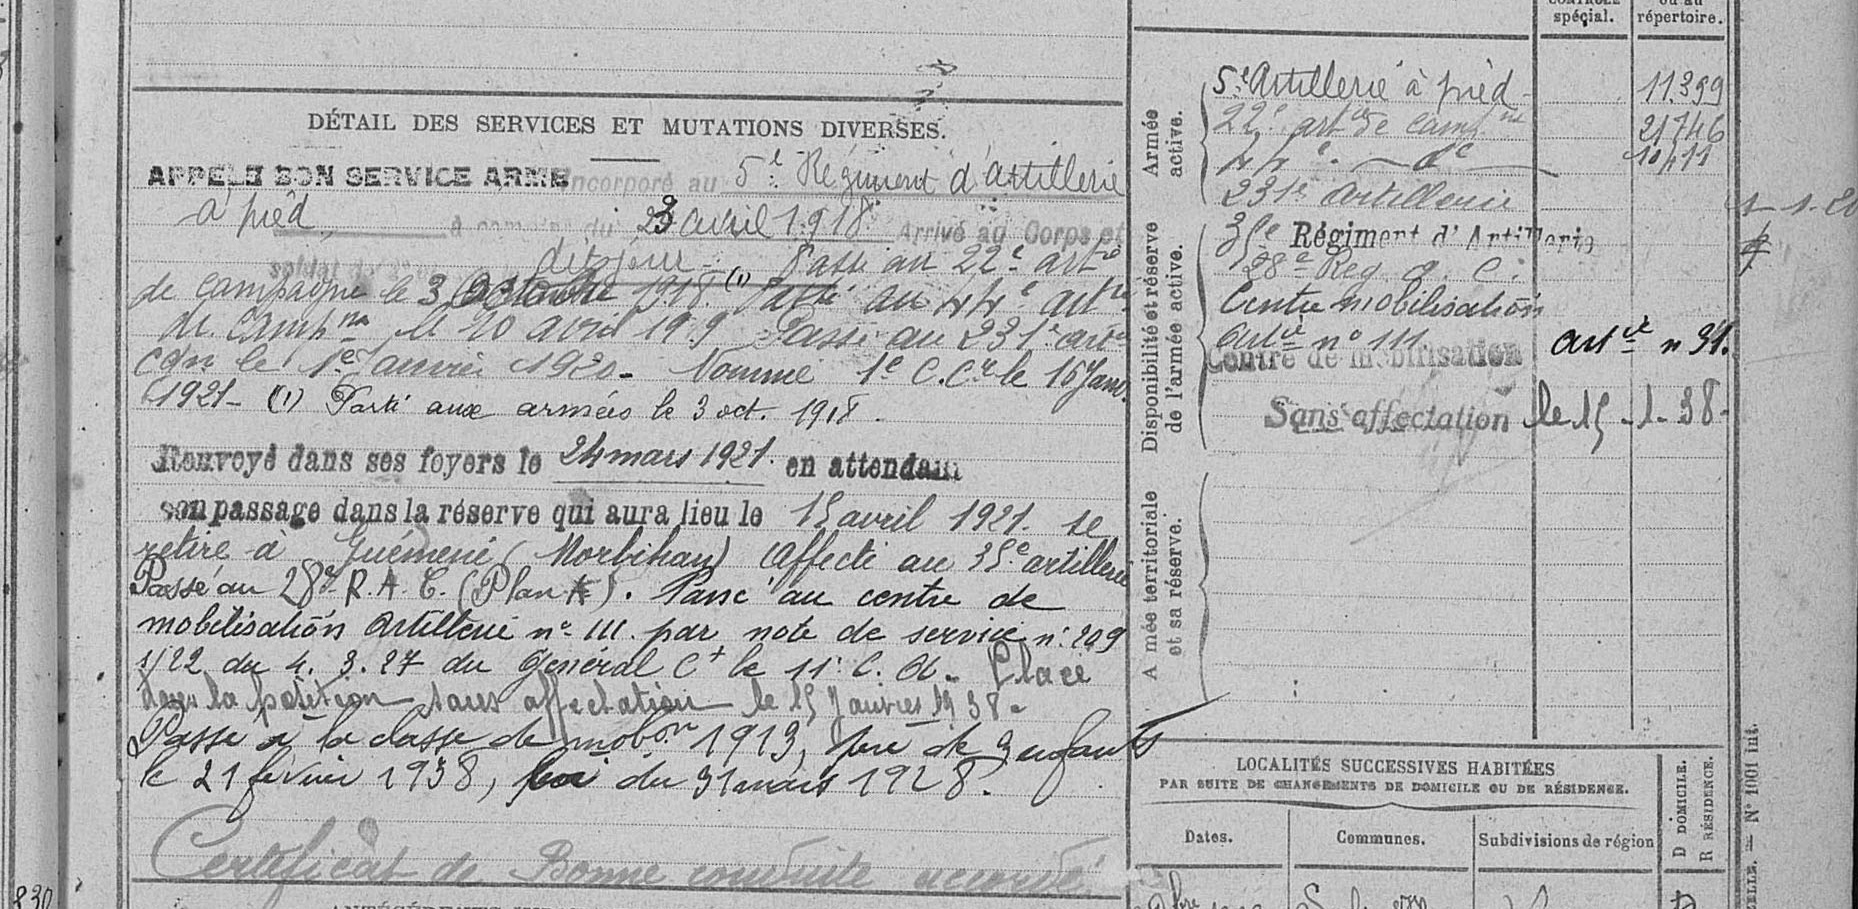 DÉTAIL DES SERVICES ET MUTATIONS DIVERSES.
APPELÉ BON SERVICE ARMÉ Incorporé au 5e Régiment d'artillerie
à pied, à compter du 23 avril 1918 Arrivé au Corps et
soldat de 2e dit jour. Passé au 22e artie
de campagne le 3 Octobre 1918 (1) Passé au 44e artie
de campne le 20 avril 1919 Passé au 231e artie
Cdn le 1er Janvier 1920 - Nommé 1e C. Cr le 16 Janv.
1921 - (1) Parti aux armées le 3 oct. 1918.
Renvoyé dans ses foyers le 24 mars 1921. en attendant
son passage dans la réserve qui aura lieu le 15 avril 1921. se
retire à Guémené (Morbihan) Affecté au 35e artillerie
Passé au 28e R.A.C. (Plan A). Passé au centre de
mobilisation Artillerie n° 111. par note de service n° 209
1/22 du 4. 3. 27 du Général Ct le 11e C. A. Placé
dans la position sans affectation le 15 Janvier 1938.
Passé à la classe de mobon 1913, père de 3 enfants
le 21 février 1938, loi du 31 mars 1928.
Certificat de Bonne conduite accordé
CONTRÔLE spécial.
ou au répertoire.
Armée active.
5e Artillerie à pied - 11.399
22e artie de campne 21746
44e - de - 10411
231e Artillerie
1-1-20
Disponibilité et réserve de l'armée active.
35e Régiment d'Artillerie
28e Reg. a. C.
Centre mobilisation
Artie n° 111.
Centre de mobilisation artie n 31.
Sans affectation le 15-1-38-
Armée territoriale et sa réserve.
LOCALITÉS SUCCESSIVES HABITÉES
PAR SUITE DE CHANGEMENTS DE DOMICILE OU DE RÉSIDENCE.
Dates.
Communes.
Subdivisions de région
D DOMICILE.
R RÉSIDENCE.
N° 1001 int.
830